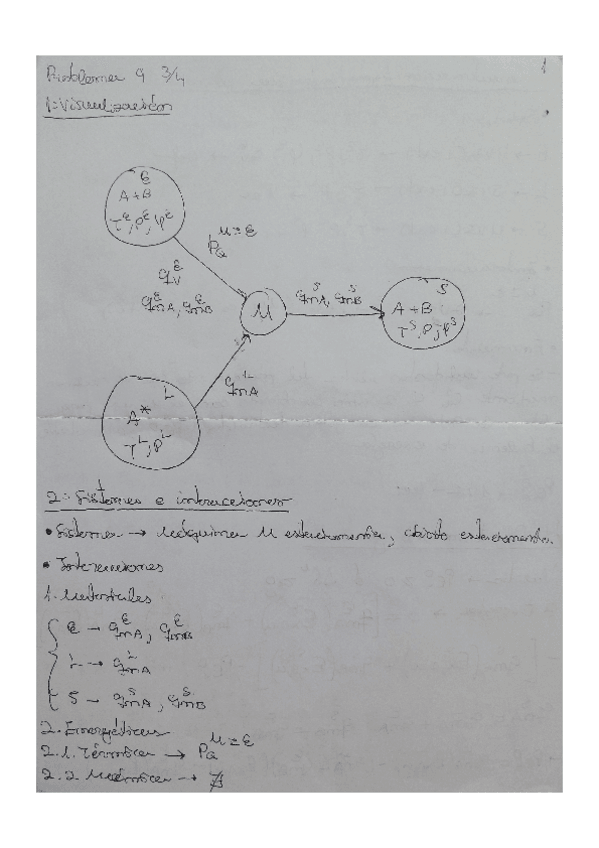 Problema 9 3/4
1
1: Visualización
E
A+B
T^E, P^E, φ^E
P_Q^{M⇌E}
q_V^E
q_mA^E, q_mB^E
M
q_mA^S, q_mB^S
S
A+B
T^S, P^S, φ^S
q_mA^L
L
A*
T^L, P^L
2: Sistemas e interacciones
• Sistema → Máquina M estacionaria, abierto estacionario.
• Interacciones
1. Materiales
E → q_mA^E, q_mB^E
L → q_mA^L
S → q_mA^S, q_mB^S
2. Energéticas
2.1. Térmica → P_Q^{M⇌E}
2.2. Mecánica → ∄